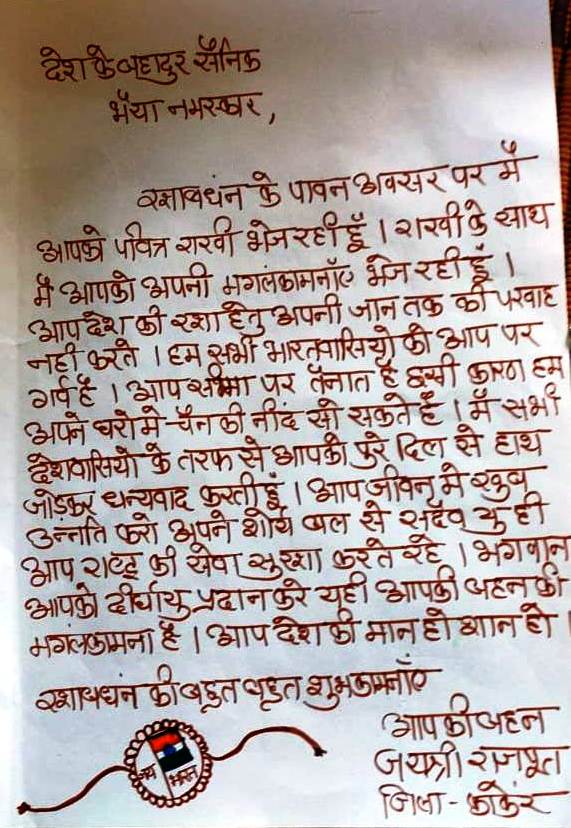 देश के बहादुर सैनिक
भैया नमस्कार,
रक्षाबधंन के पावन अवसर पर मैं
आपको पवित्र राखी भेज रही हूँ । राखी के साथ
मैं आपको अपनी मगलंकामनाँए भेज रही हूँ ।
आप देश की रक्षा हेतु अपनी जान तक की परवाह
नही करते । हम सभी भारतवासियो को आप पर
गर्व है । आप सीमा पर तैनात है इसी कारण हम
अपने घरो मे चैन की नींद सो सकते है । मैं सभी
देशवासियो के तरफ से आपको पुरे दिल से हाथ
जोड़कर धन्यवाद करती हूं । आप जीवन मे खुब
उन्नति करो अपने शौर्य बल से सदैव यु ही
आप राष्ट्र की सेवा सुरक्षा करते रहे । भगवान
आपको दीर्घायु प्रदान करे यही आपकी बहन की
मगंलकामना है । आप देश की मान हो शान हो ।
रक्षाबधंन की बहुत बहुत शुभकामनाँए
आपकी बहन
जयश्री राजपूत
जिला - कांकेर
जय भारत